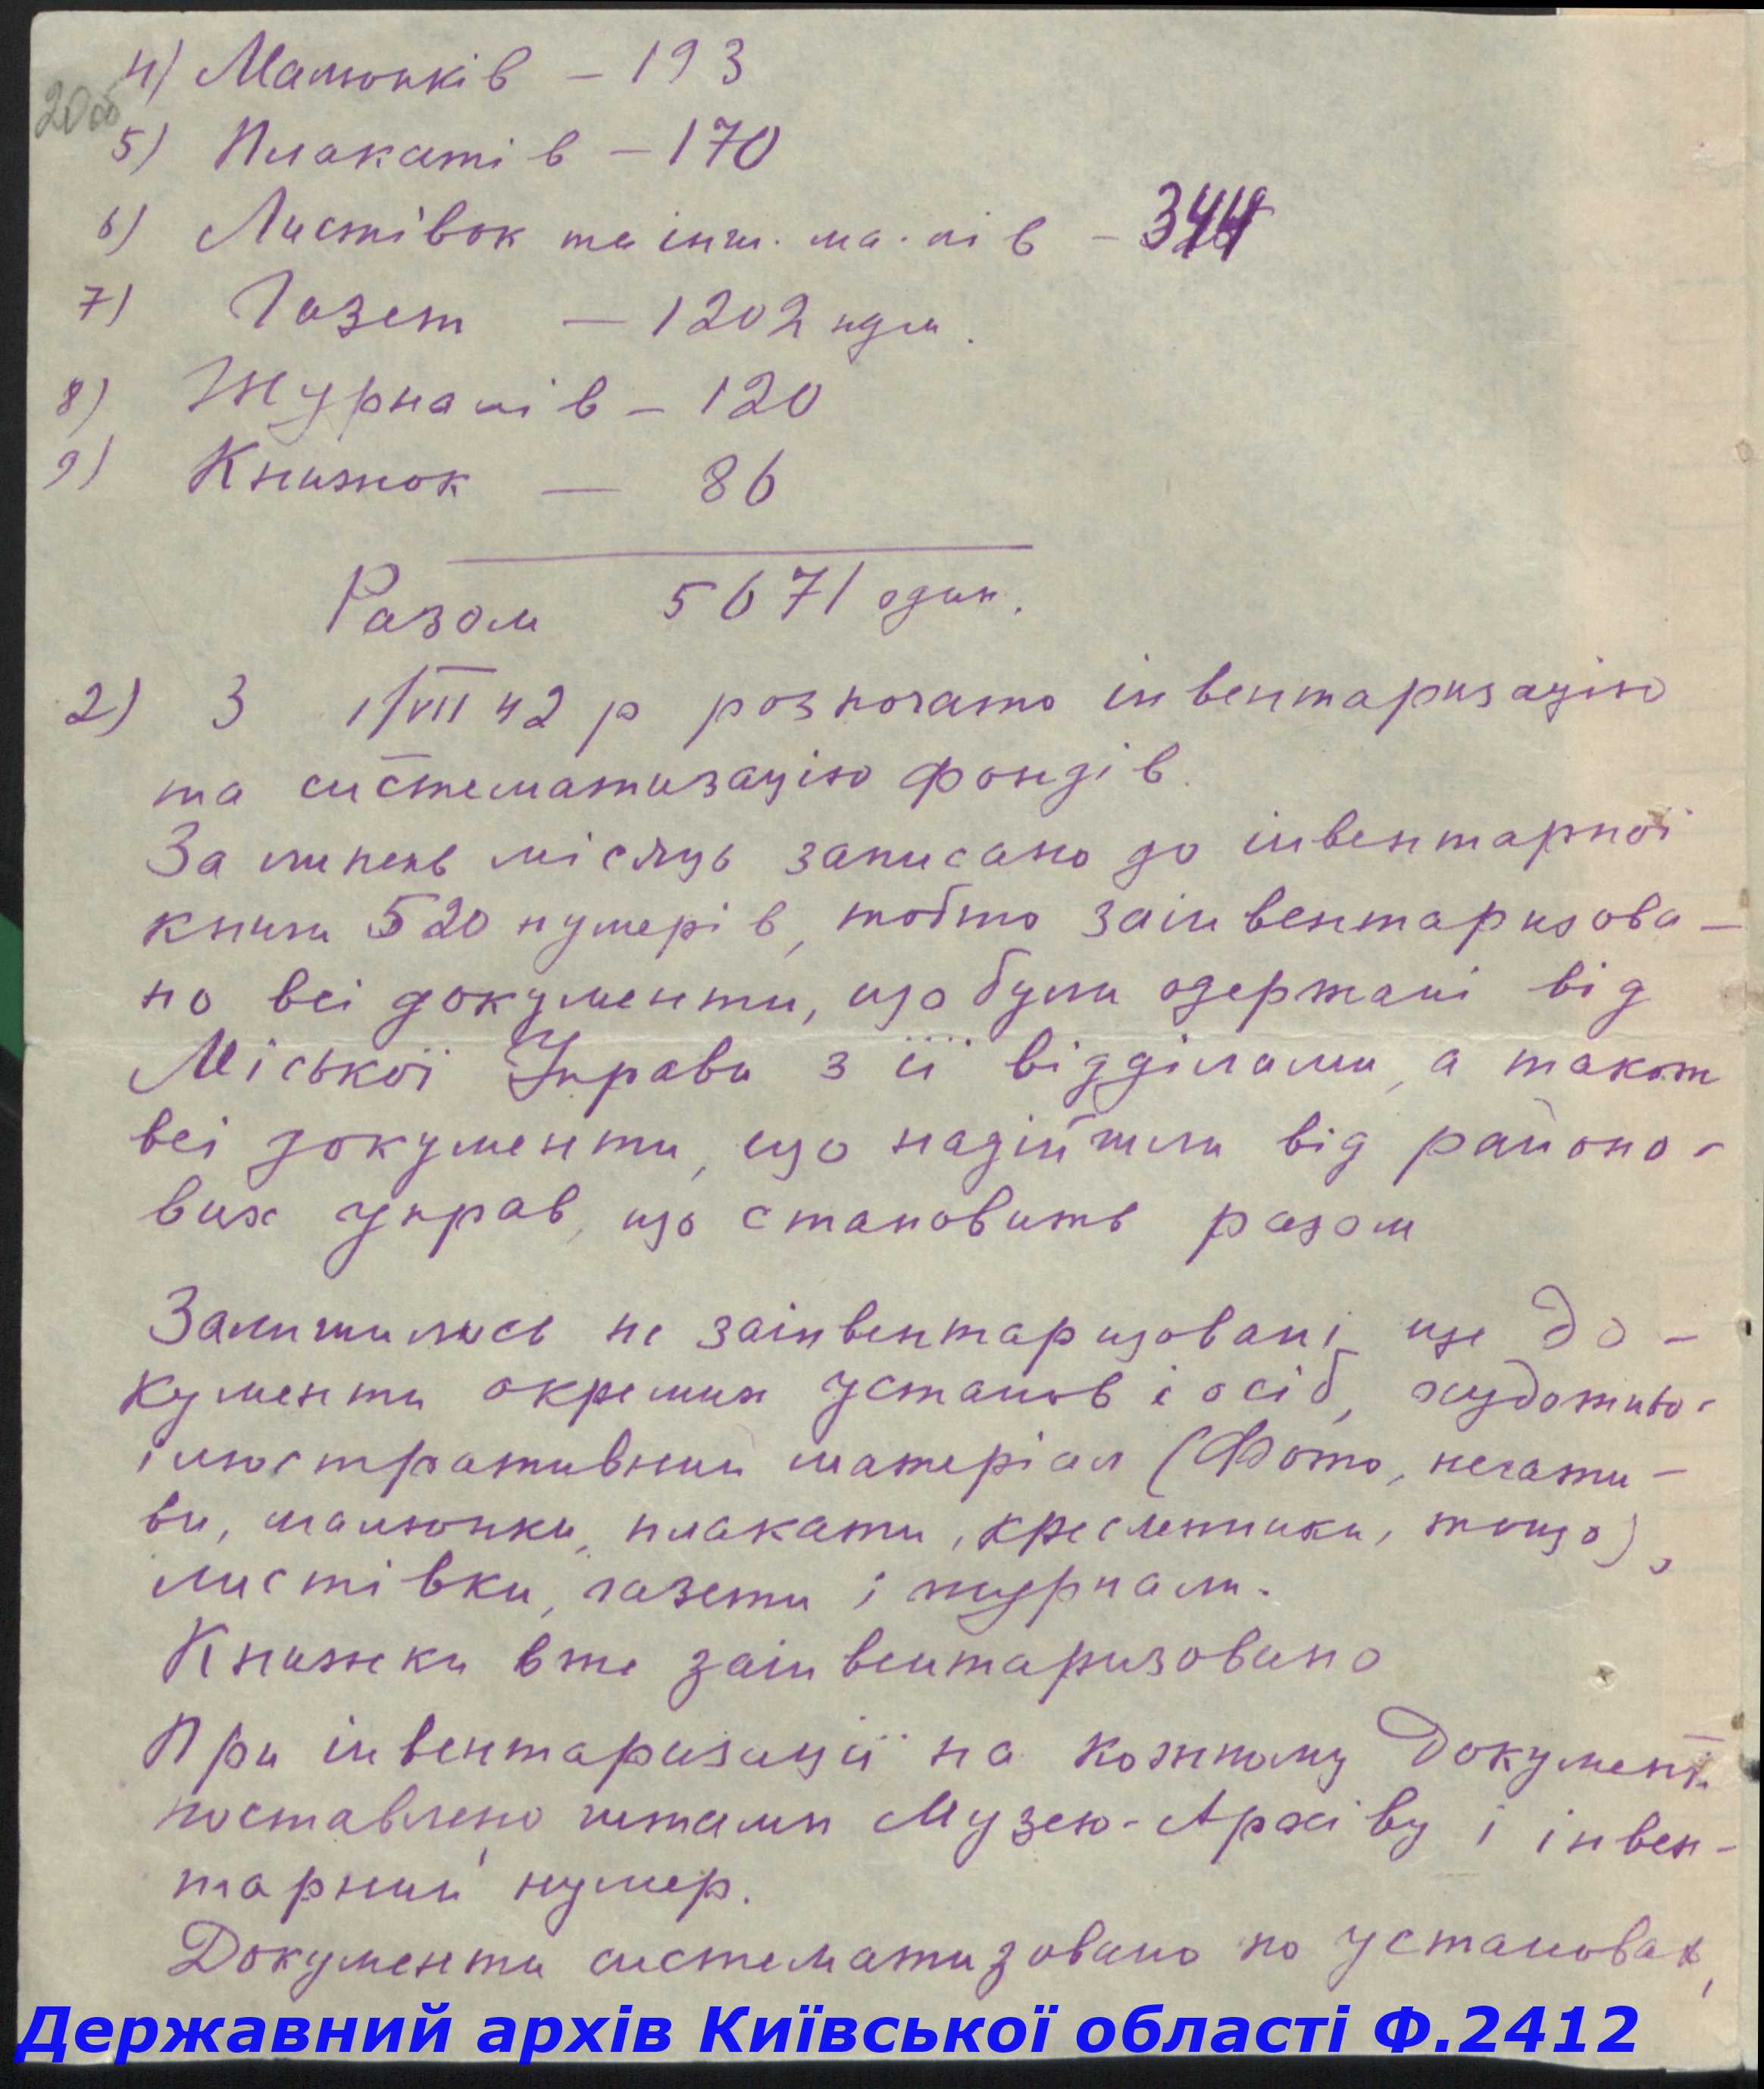 20об
4) Малюнків – 193
5) Плакатів – 170
6) Листівок та інш. ма-лів – 344
7) Газет – 1202 прим.
8) Журналів – 120
9) Книжок – 86
Разом 5671 один.
2) З 1/VII 42 р розпочато інвентаризацію
та систематизацію фондів.
За липень місяць записано до інвентарної
книги 520 нумерів, тобто заінвентаризова-
но всі документи, що були одержані від
Міської Управи з її відділами, а також
всі документи, що надійшли від районо-
вих управ, що становить разом
Залишились не заінвентаризовані ще до-
кументи окремих установ і осіб, художньо-
ілюстративний матеріал (Фото, негати-
ви, малюнки, плакати, креслення, тощо),
листівки, газети і журнали.
Книжки вже заінвентаризовано
При інвентаризації на кожному документі
поставлено штамп Музею-Архіву і інвен-
тарний нумер.
Документи систематизовано по установах,
Державний архів Київської області Ф.2412